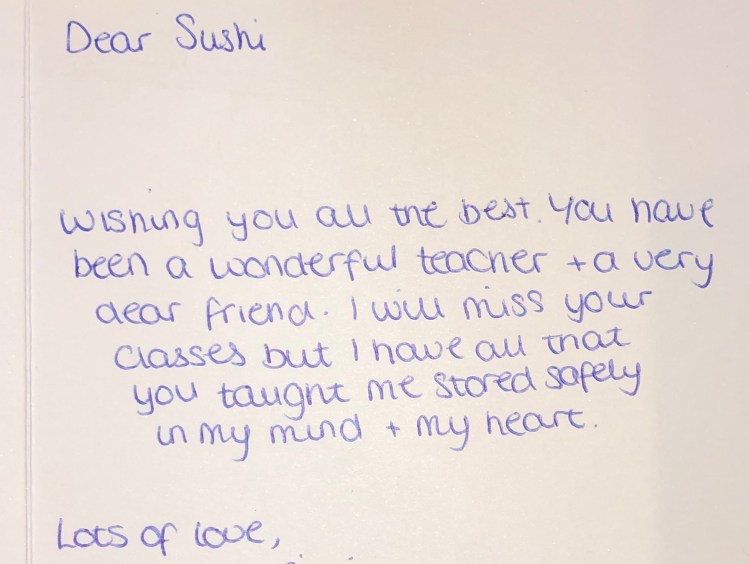 Dear Sushi
Wishing you all the best. You have
been a wonderful teacher + a very
dear friend. I will miss your
classes but I have all that
you taught me stored safely
in my mind + my heart.
Lots of love,